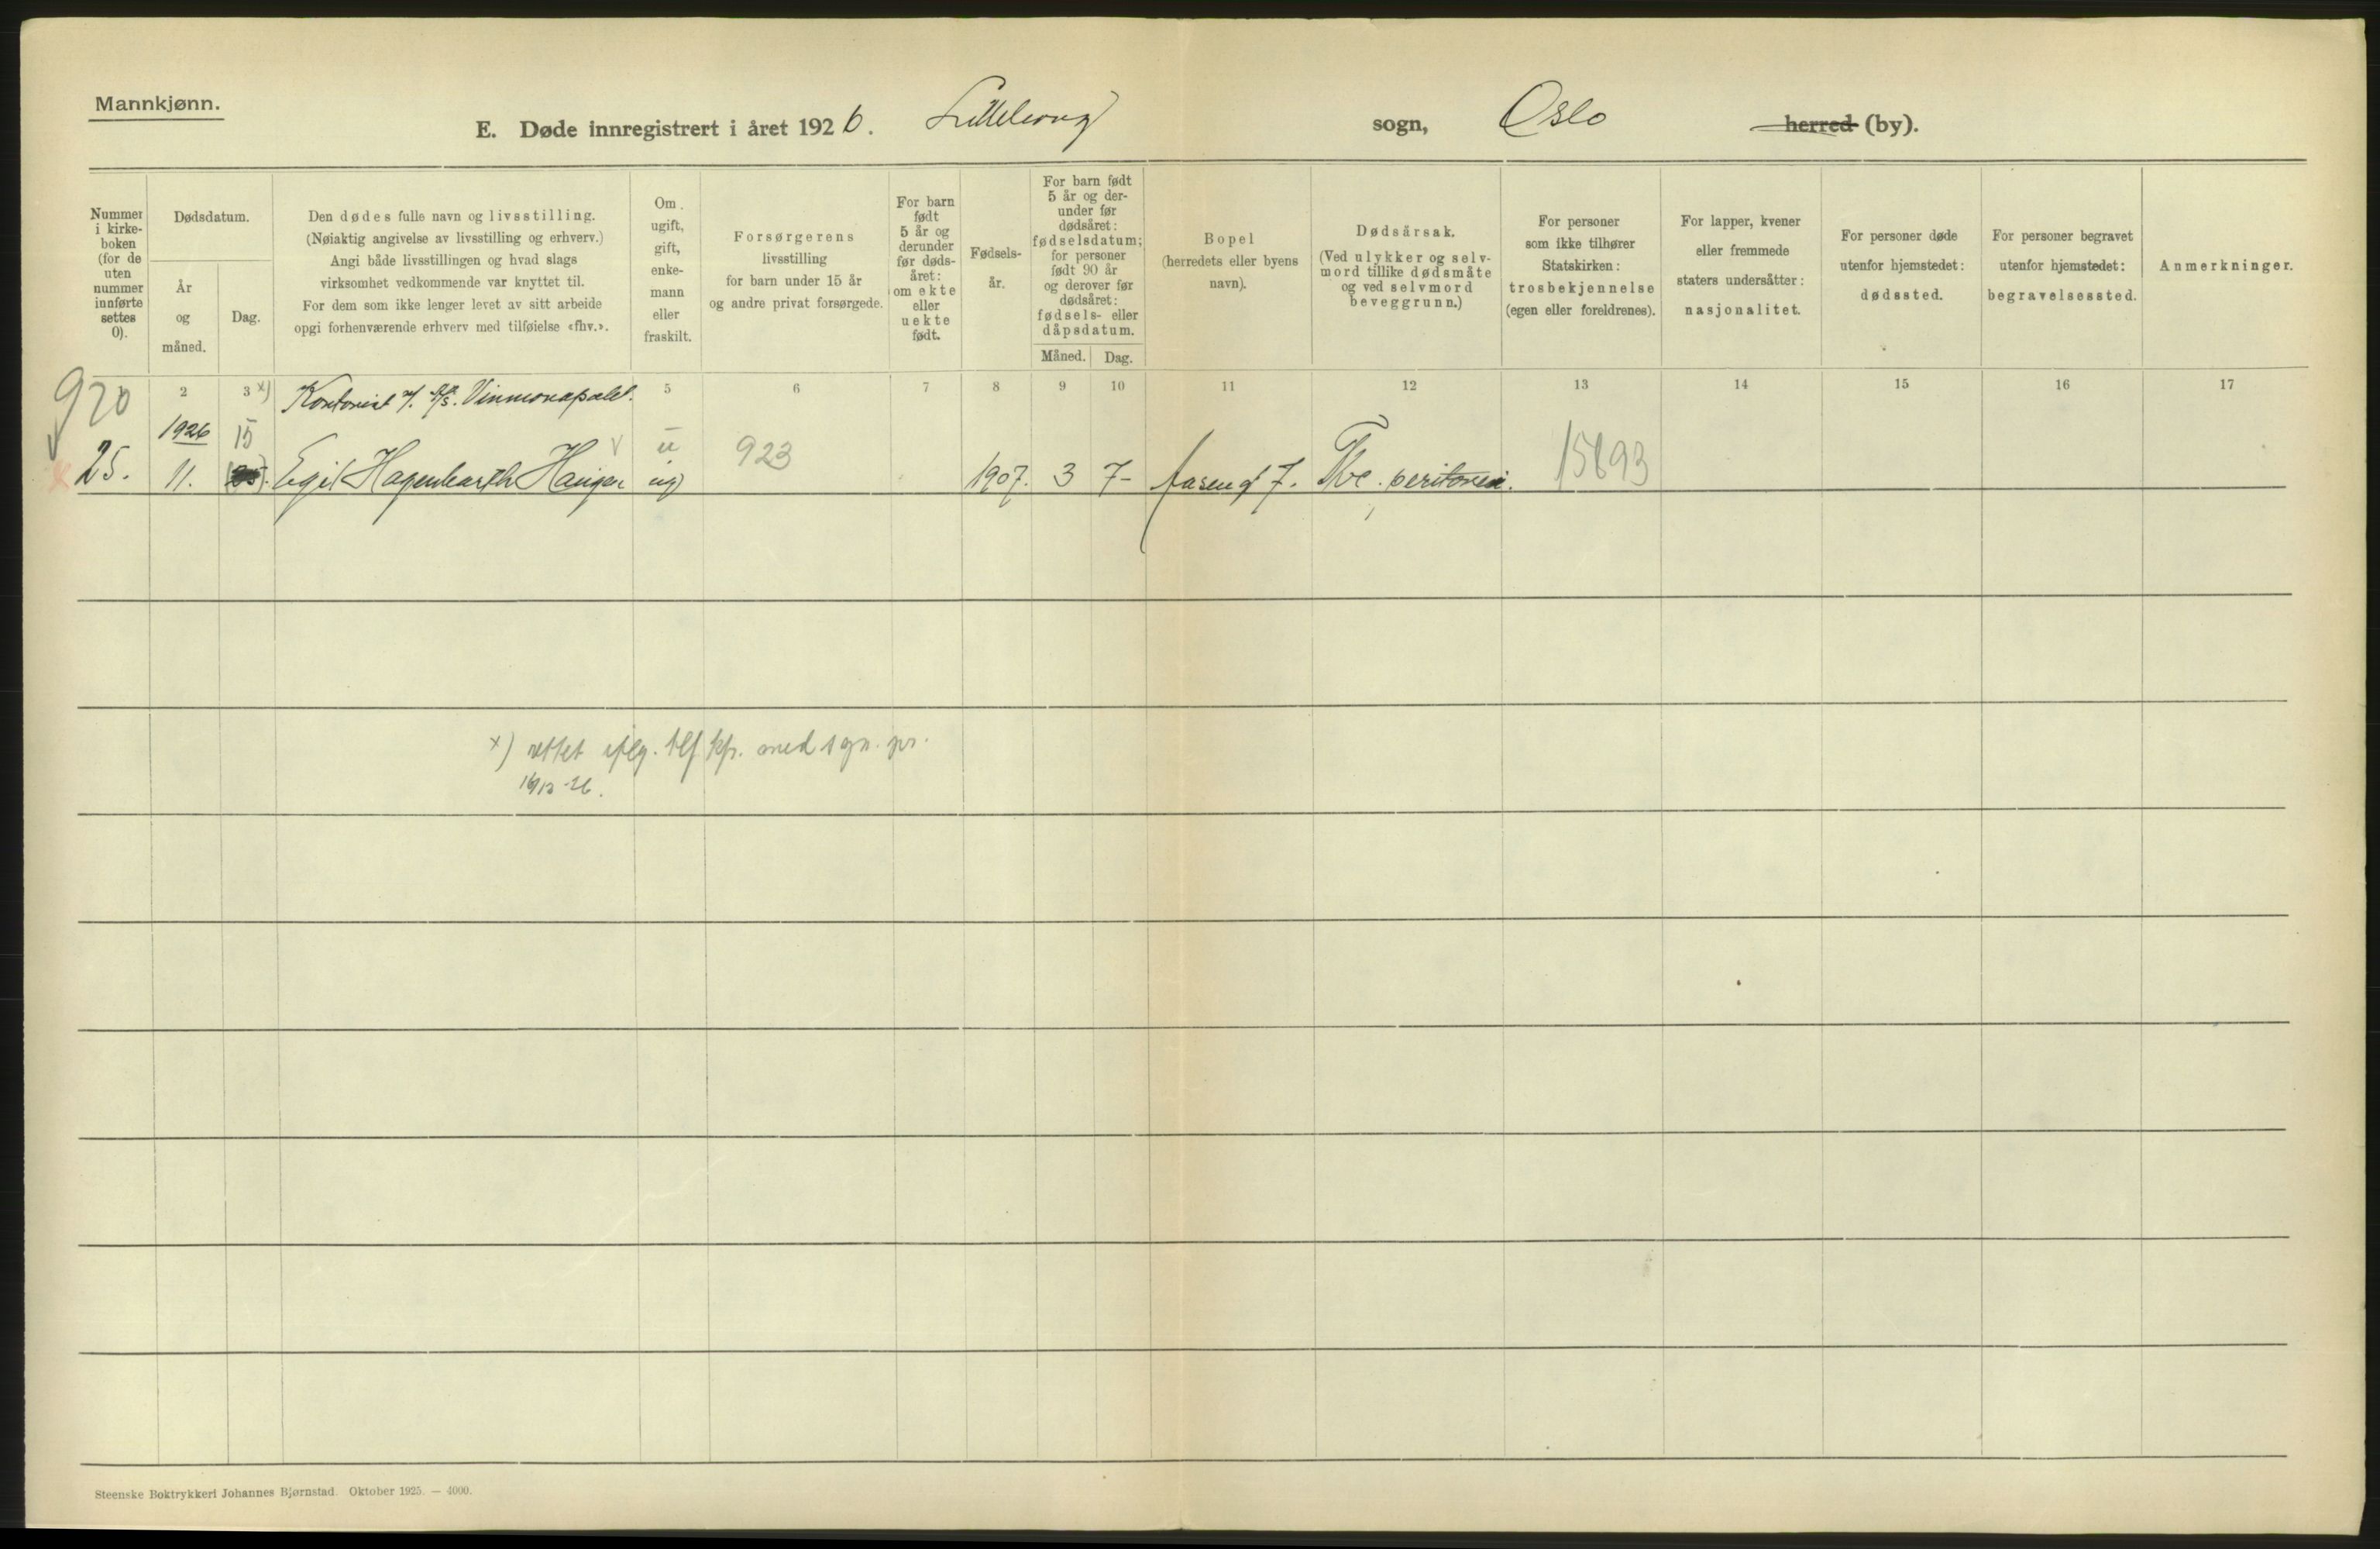 Mannkjønn.
E. Døde innregistrert i året 1926. Lilleborg sogn, Oslo herred (by).
Nummer i kirke-boken (for de uten nummer innførte settes 0).
Dødsdatum.
År og måned.
Dag.
Den dødes fulle navn og livsstilling.
(Nøiaktig angivelse av livsstilling og erhverv.)
Angi både livsstillingen og hvad slags
virksomhet vedkommende var knyttet til.
For dem som ikke lenger levet av sitt arbeide
opgi forhenværende erhverv med tilføielse «fhv.».
Om ugift, gift, enke-mann eller fraskilt.
Forsørgerens
livsstilling
for barn under 15 år
og andre privat forsørgede.
For barn født 5 år og derunder før døds-året: om ekte eller uekte født.
Fødsels-år.
For barn født 5 år og der-under før dødsåret: fødselsdatum; for personer født 90 år og derover før dødsåret: fødsels- eller dåpsdatum.
Måned. Dag.
Bopel
(herredets eller byens
navn).
Dødsårsak.
(Ved ulykker og selv-
mord tillike dødsmåte
og ved selvmord
beveggrunn.)
For personer
som ikke tilhører
Statskirken:
trosbekjennelse
(egen eller foreldrenes).
For lapper, kvener
eller fremmede
staters undersåtter:
nasjonalitet.
For personer døde
utenfor hjemstedet:
dødssted.
For personer begravet
utenfor hjemstedet:
begravelsessted.
Anmerkninger.
920 2 3 x) Kontorist v/. A/s. Vinmonopolet. 5 6 7 8 9 10 11 12 13 14 15 16 17
1926 15 u 923 15693
25. 11. Egil Hagenbarth Haugen ug 1907. 3 7- Aaseng 7. Tbc. peritonei.
x) rettet iflg. tlf kfr. med sgn. pr.
16/12-26.
Steenske Boktrykkeri Johannes Bjørnstad. Oktober 1925. — 4000.